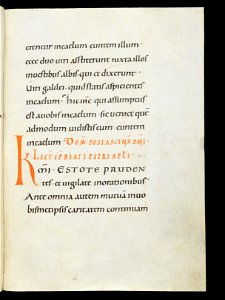 erentur incaelum euntem illum·
ecce duo uiri astiterunt iuxta illos
inuestibus albis· qui et dixerunt·
Uiri galilei· quid statis aspicientes
incaelum· hic ihs· qui assumptus
est auobis incaelum· sic ueniet quem
admodum uidistis eum· euntem
incaelum· DOM· POST ASCENS DNI
LECT EP BEATI PETRI APLI·
KMI· ESTOTE PRUDEN
tes· et uigilate inorationibus·
Ante omnia autem mutuam inuo
bismetipsis caritatem continuam